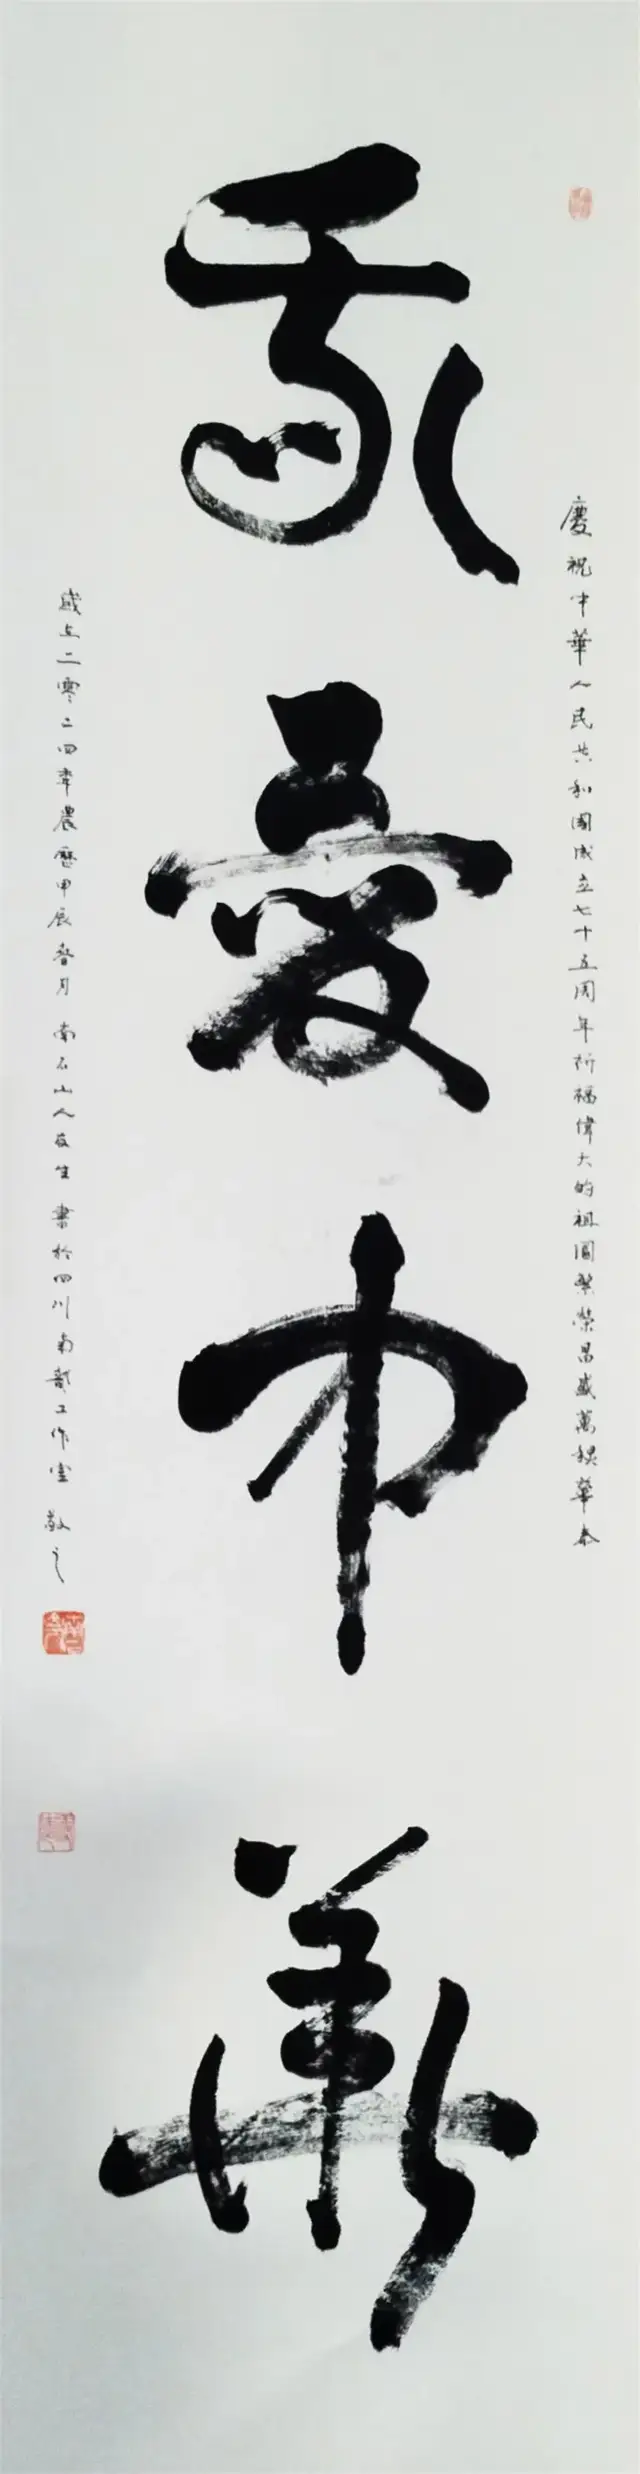 慶祝中華人民共和國成立七十五周年祈福偉大的祖國繁榮昌盛萬華
我愛中華
歲二零二四年農歷甲辰月 南石山人生 書於四川南部工作室 敬之